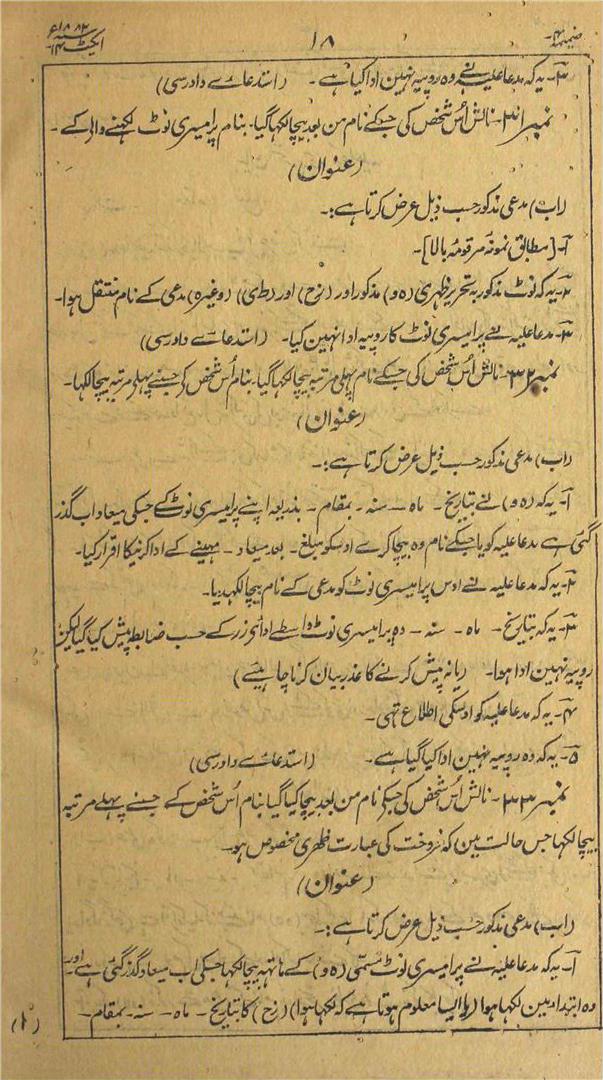 ضمیمہ ۴- ۱۸ ایکٹ ۱۴- سنہ ۱۸۸۲ء
۳- یہ کہ مدعاعلیہ نے وہ روپیہ نہین ادا کیا ہے - (استدعاے دادرسی)
نمبر ۳۱- نالش اُس شخص کی جسکے نام من بعد بیچا لکھا گیا- بنام پرامیسری نوٹ لکھنے والے کے -
(عنوان)
(اب) مدعی مذکور حسب ذیل عرض کرتا ہے:-
۱- [مطابق نمونہ مرقومہ بالا]-
۲- یہ کہ نوٹ مذکور بہ تحریر ظہری (ہ و) مذکور اور (زح) اور (ط ی) (وغیرہ) مدعی کے نام منتقل ہوا-
۳- مدعاعلیہ نے پرامیسری نوٹ کا روپیہ ادا نہین کیا- (استدعاے دادرسی)
نمبر ۳۲- نالش اُس شخص کی جسکے نام پہلی مرتبہ بیچا لکھا گیا- بنام اُس شخص کے جسنے پہلی مرتبہ بیچا لکھا-
(عنوان)
(اب) مدعی مذکور حسب ذیل عرض کرتا ہے:-
۱- یہ کہ (ہ و) نے بتاریخ - ماہ - سنہ - بمقام - بذریعہ اپنے پرامیسری نوٹ کے جسکی میعاد اب گذر
گئی ہے مدعاعلیہ کو یا جسکے نام وہ بیچا کرے اوسکو مبلغ - بعد میعاد - مہینے کے ادا کرنیکا اقرار کیا-
۲- یہ کہ مدعاعلیہ نے اوس پرامیسری نوٹ کو مدعی کے نام بیچا لکھدیا-
۳- یہ کہ بتاریخ - ماہ - سنہ - وہ پرامیسری نوٹ واسطے اداے زر کے حسب ضابطہ پیش کیا گیا لیکن
روپیہ نہین ادا ہوا - (یا نہ پیش کرنے کا عذر بیان کرنا چاہیئے)
۴- یہ کہ مدعاعلیہ کو اوسکی اطلاع تھی-
۵- یہ کہ وہ روپیہ نہین ادا کیا گیا ہے - (استدعاے دادرسی)
نمبر ۳۳- نالش اُس شخص کی جسکے نام من بعد بیچا کیا گیا بنام اُس شخص کے جسنے پہلے مرتبہ
بیچا لکھا جس حالت مین کہ فروخت کی عبارت ظہری مخصوص ہو-
(عنوان)
(اب) مدعی مذکور حسب ذیل عرض کرتا ہے:-
۱- یہ کہ مدعاعلیہ نے پرامیسری نوٹ مسمی (ہ و) کے ہاتھ بیچا لکھا جسکی اب میعاد گذر گئی ہے اور
وہ ابتدا مین لکھا ہوا (یا ایسا معلوم ہوتا ہے کہ لکھا ہوا) (زح) کا بتاریخ - ماہ - سنہ - بمقام -
(۱)